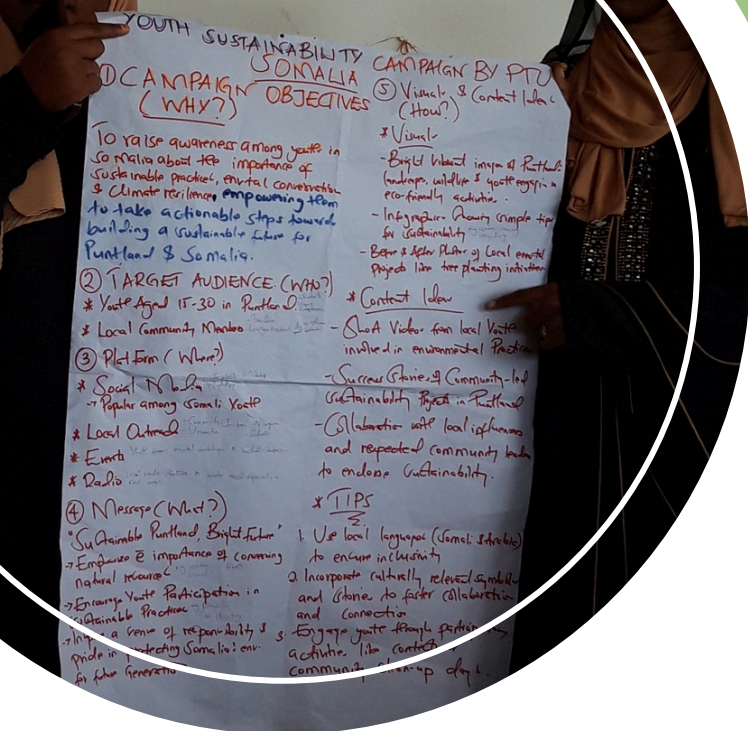 YOUTH SUSTAINABILITY CAMPAIGN BY PTU
SOMALIA
① CAMPAIGN OBJECTIVES
(WHY?)
To raise awareness among youth in
Somalia about the importance of
sustainable practices, conservation
& Climate resilience, empowering them
to take actionable steps toward
building a sustainable future for
Puntland & Somalia.
② TARGET AUDIENCE (WHO?)
* Youth Aged 15-30 in Puntland
* Local Community Members
③ Platform (Where?)
* Social Media
→ Popular among Somali Youth
* Local Outreach
* Events
* Radio
④ Message (What?)
"Sustainable Puntland, Bright Future"
→ Emphasize importance of conserving
natural resources
→ Encourage Youth Participation in
Sustainable Practices
→ a sense of responsibility &
pride in protecting Somalia! env.
for future Generation
⑤ Visual & Content Idea
(How?)
* Visual
- Bright Vibrant images of Puntland
landscapes, wildlife & youth in
eco-friendly activities.
- Infographics showing simple tips
for sustainability
- Before & After Photos of Local
Projects like tree planting initiatives
* Content Idea
- Short Videos from local Youth
involved in environmental Practices
- Success Stories of Community-led
Sustainability Projects in Puntland
- Collaboration with local influencers
and respected community leaders
to endorse Sustainability.
* TIPS
1. Use local languages (Somali & Arabic)
to ensure inclusivity
2. Incorporate culturally relevant symbols
and stories to foster collaboration
and connection
3. Engage youth through
activities like contests
community clean-up days.